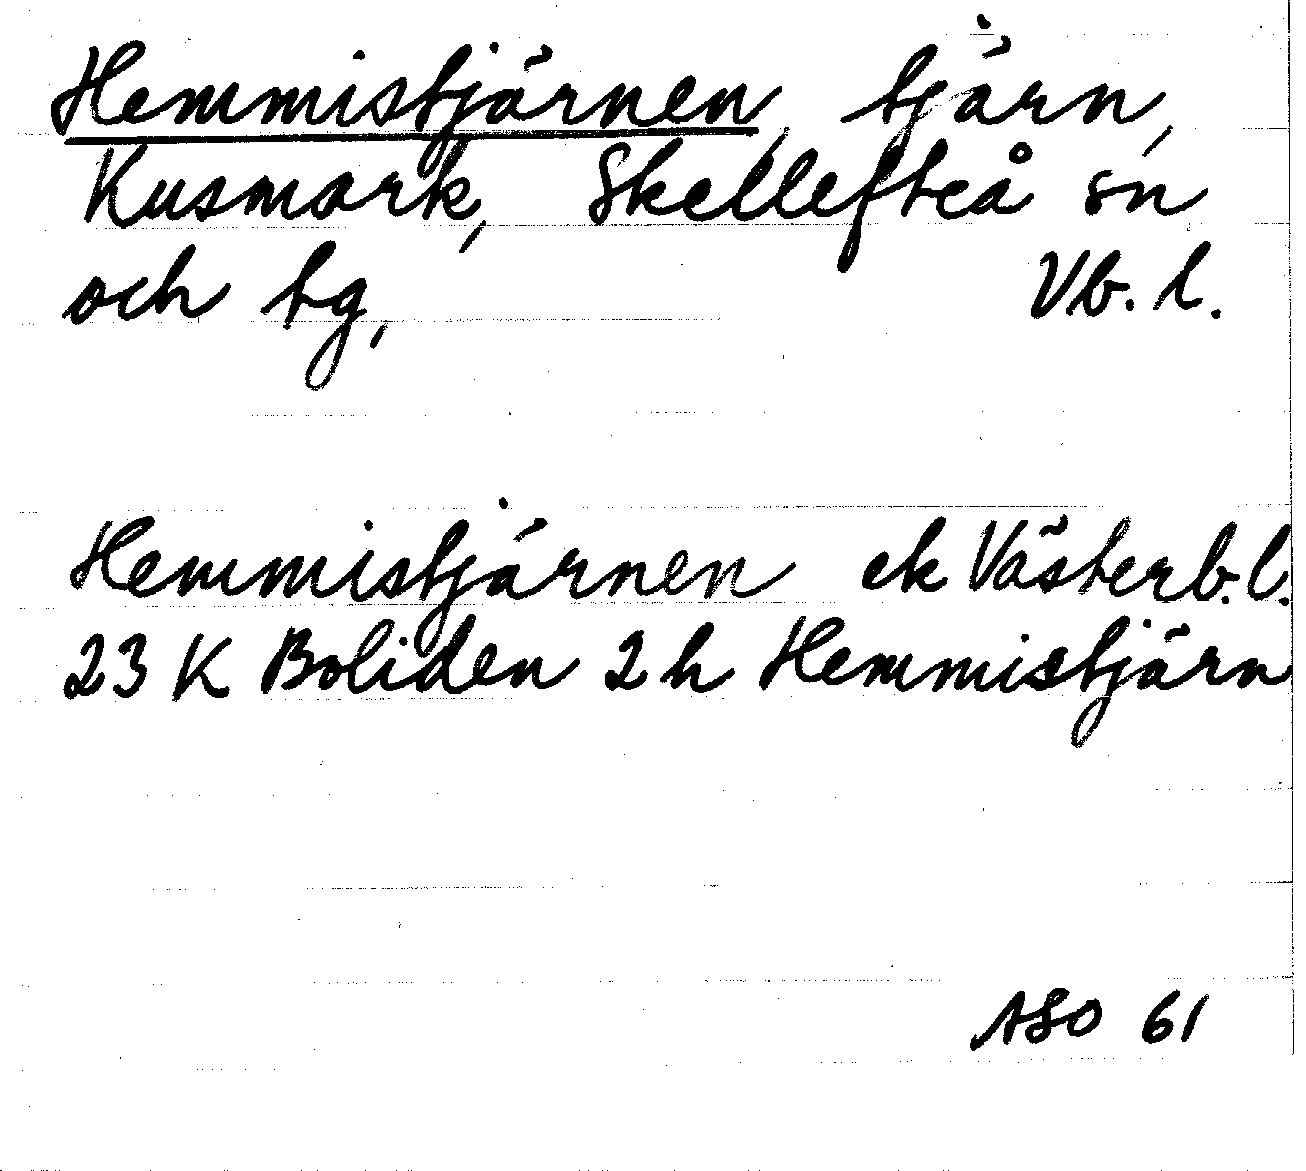 Hemmistjärnen, tjärn,
Kusmark, Skellefteå sn
och tg, Vb. l.
Hemmistjärnen ek Västerb. l.
23 K Boliden 2 h Hemmistjärn
ASO 61